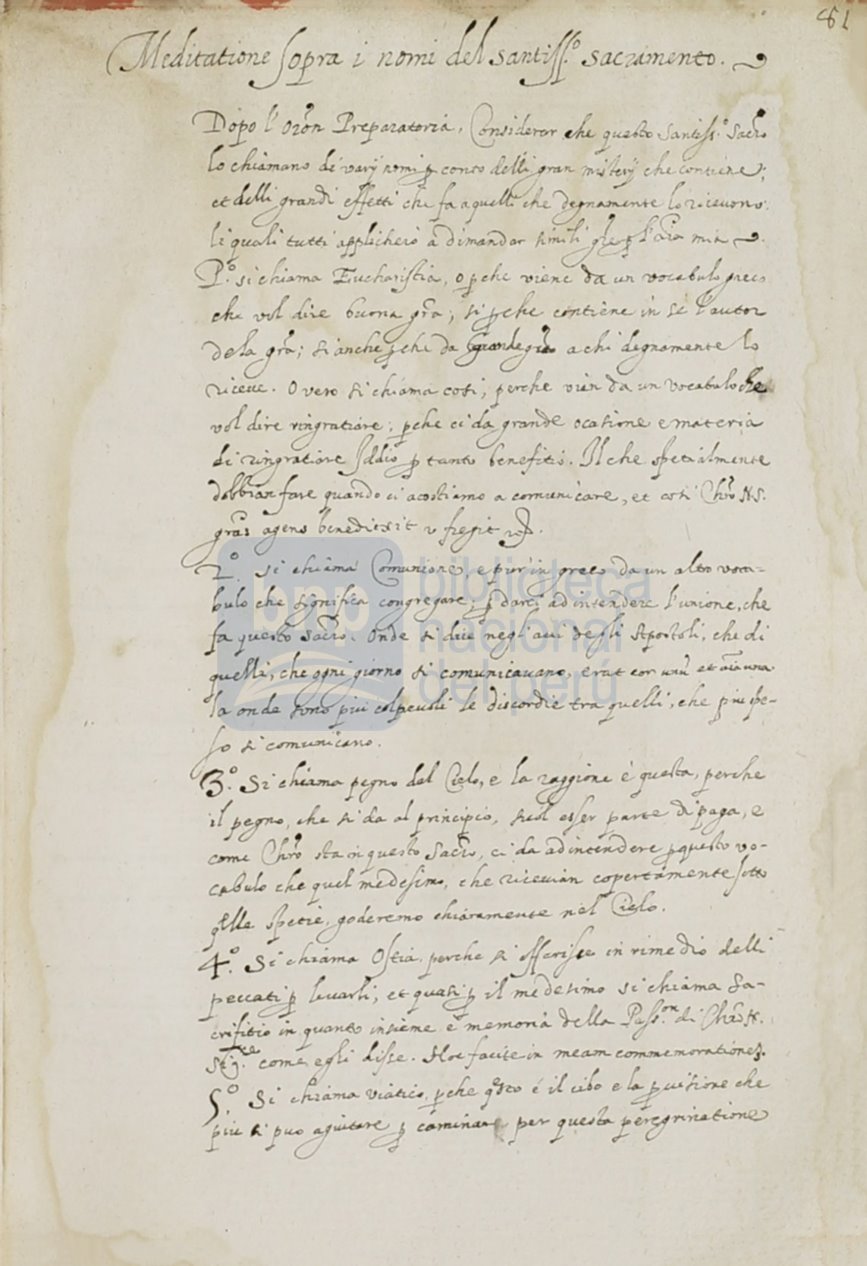 81
Meditatione sopra i nomi del santiss.º sacramento.
Dopo l'orōn Preparatoria, Considerar che questo santiss.º Sacr̄o
lo chiamano de varij nomi p conto delli gran misterij che contiene;
et delli grandi effetti che fa a quelli che degnamente lo ricevono.
li quali tutti applicherò a dimandar simili p l'aīa mia.
P.º si chiama Eucharistia, o pche viene da un vocabulo greco
che vol dire buona gr̄a; si pche contiene in se l'autor
dela gr̄a; si anche pche da grande gr̄a a chi degnamente lo
riceve. O vero si chiama cosi, perche vien da un vocabulo che
vol dire ringratiare; pche ci da grande ocasione e materia
di ringratiare Iddio p tanto benefitio. Il che spetialmente
dobbian fare quando ci acostiamo a comunicare, et cosi Chr̄o N.S.
gr̄as agens benedixit fregit
2.º si chiama Comunione, e pur in greco da un altro voca-
bulo che significa congregare; p darci ad intendere l'unione, che
fa questo Sacr̄o. Onde si dice negli atti degli Apostoli, che di
quelli, che ogni giorno si comunicavano, erat cor unū et aīa una
la onde sono piu colpevoli le discordie tra quelli, che piu spe-
so si comunicano.
3.º Si chiama pegno del Cielo, e la raggione è questa, perche
il pegno, che si da al principio, suol esser parte di paga, e
come Chr̄o sta in questo Sacr̄o, ci da ad intendere p questo vo-
cabulo che quel medesimo, che ricevian copertamente sotto
qlle spetie, goderemo chiaramente nel Cielo.
4.º Si chiama Ostia, perche si offerisce in rimedio delli
peccati p levarli, et quasi p il medesimo si chiama Sa-
crifitio in quanto insieme è memoria della Pass.on di Chr̄o N.
Sig.re come egli disse. Hoc facite in meam commemorationem.
5.º Si chiama viatico, pche qsto é il cibo e la pvisione che
piu si puo aguitare p caminare per questa peregrinatione
biblioteca
nacional
del perú
bnp